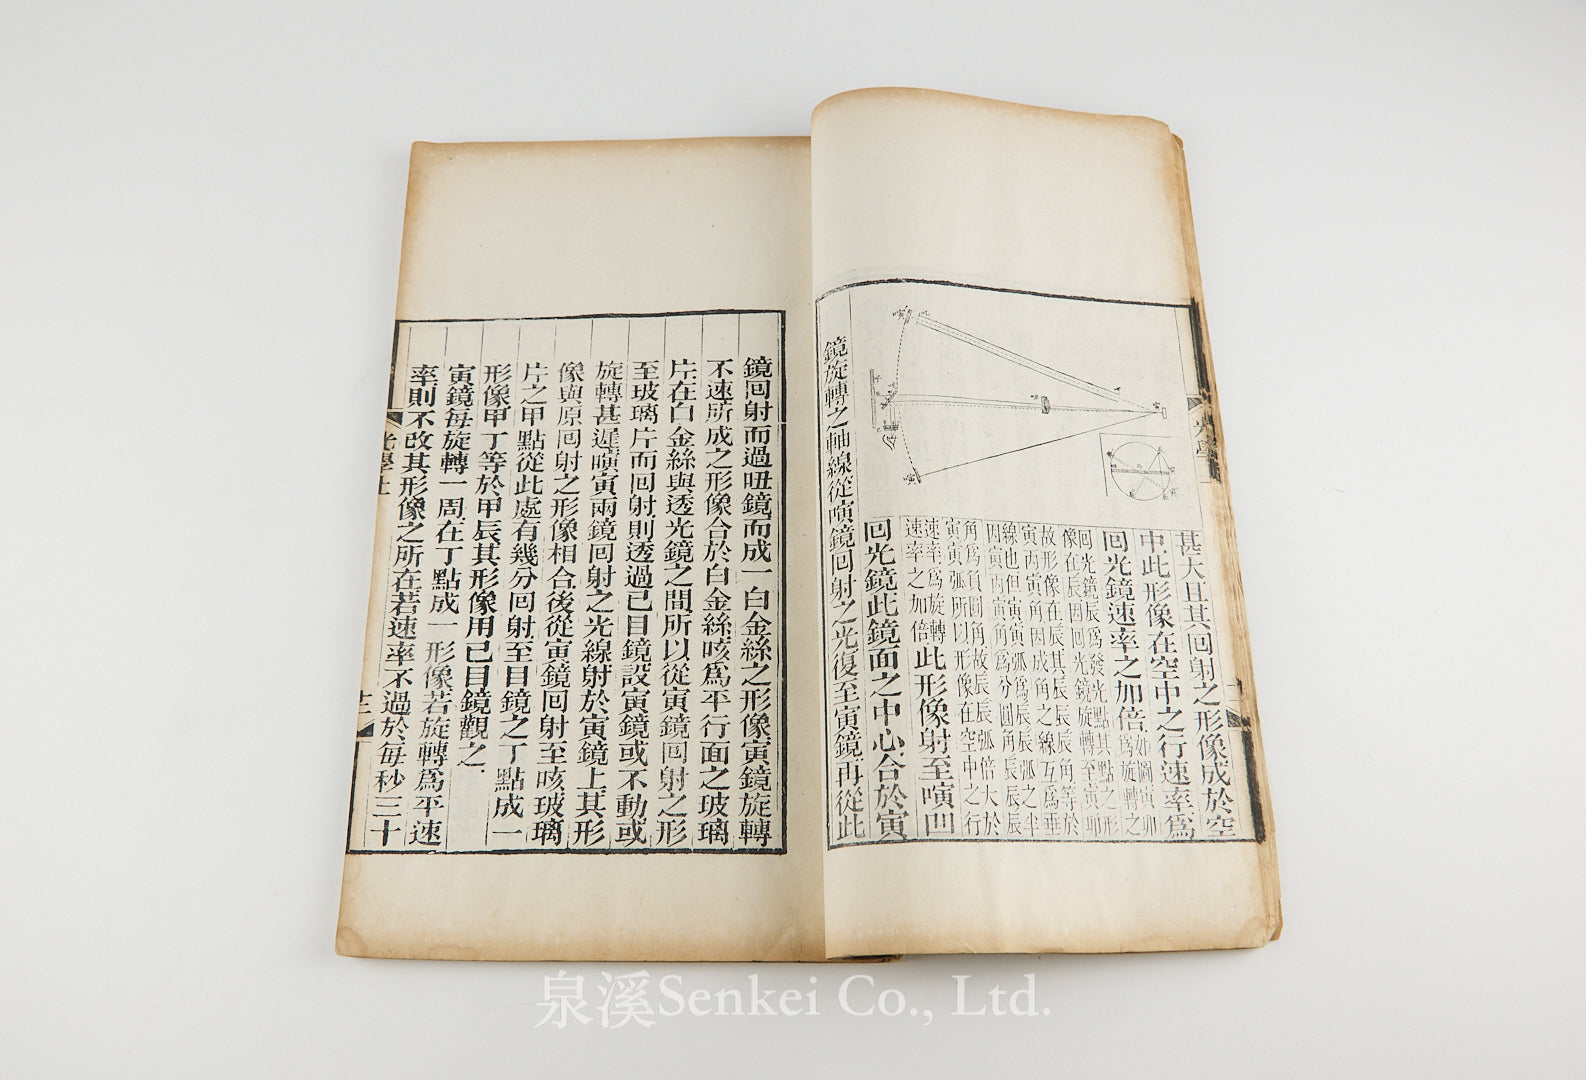 甚大且其回射之形像成於空
中此形像在空中之行速率爲
回光鏡速率之加倍如圖寅卯爲旋轉之
回光鏡辰爲發光點其點之形
像在辰因回光鏡旋轉至寅卯
故形像在辰其辰辰角等於
寅丙寅角因成角之線互爲垂
線也但寅寅弧爲辰辰弧之半
因寅丙寅角爲分圓角辰辰辰
角爲負圓角故辰辰弧倍大於
寅寅弧所以形像在空中之行
速率爲旋轉
速率之加倍此形像射至嚝凹
回光鏡此鏡面之中心合於寅
鏡旋轉之軸線從嚝鏡回射之光復至寅鏡再從此
光學上
鏡回射而過吜鏡而成一白金絲之形像寅鏡旋轉
不速所成之形像合於白金絲咳爲平行面之玻璃
片在白金絲與透光鏡之間所以從寅鏡回射之形
至玻璃片而回射則透過己目鏡設寅鏡或不動或
旋轉甚遲嚝寅兩鏡回射之光線射於寅鏡上其形
像與原回射之形像相合後從寅鏡回射至咳玻璃
片之甲點從此處有幾分回射至目鏡之丁點成一
形像甲丁等於甲辰其形像用己目鏡觀之
寅鏡每旋轉一周在丁點成一形像若旋轉爲平速
率則不改其形像之所在若速率不過於每秒三十
光學上
泉溪Senkei Co., Ltd.